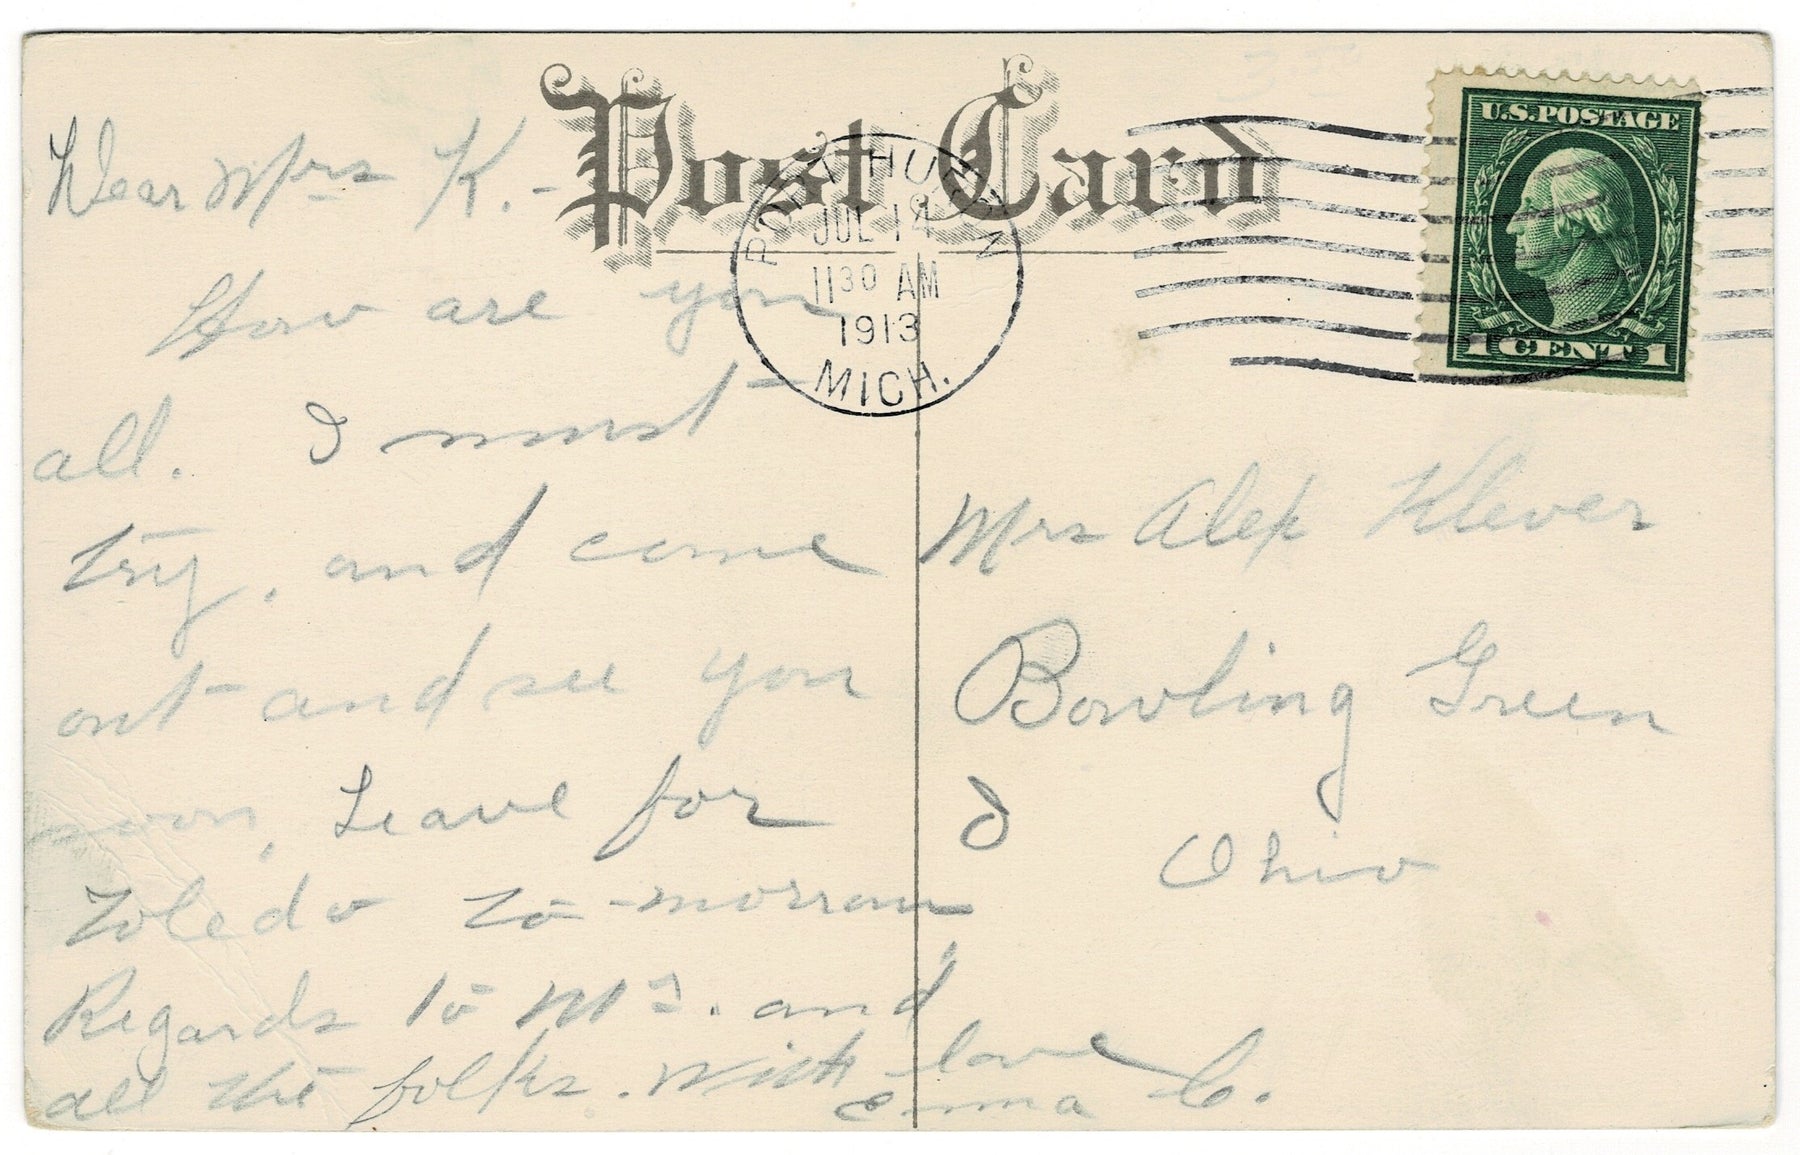 Post Card
PORT HURON
JUL 14
11 30 AM
1913
MICH.
U.S. POSTAGE
1 CENT 1
Dear Mrs K. -
How are you
all. I must
try, and come
out and see you
soon, Leave for
Toledo to-morrow
Regards to Mr. and
all the folks. With love
Emma C.
Mrs Alex Klever
Bowling Green
Ohio